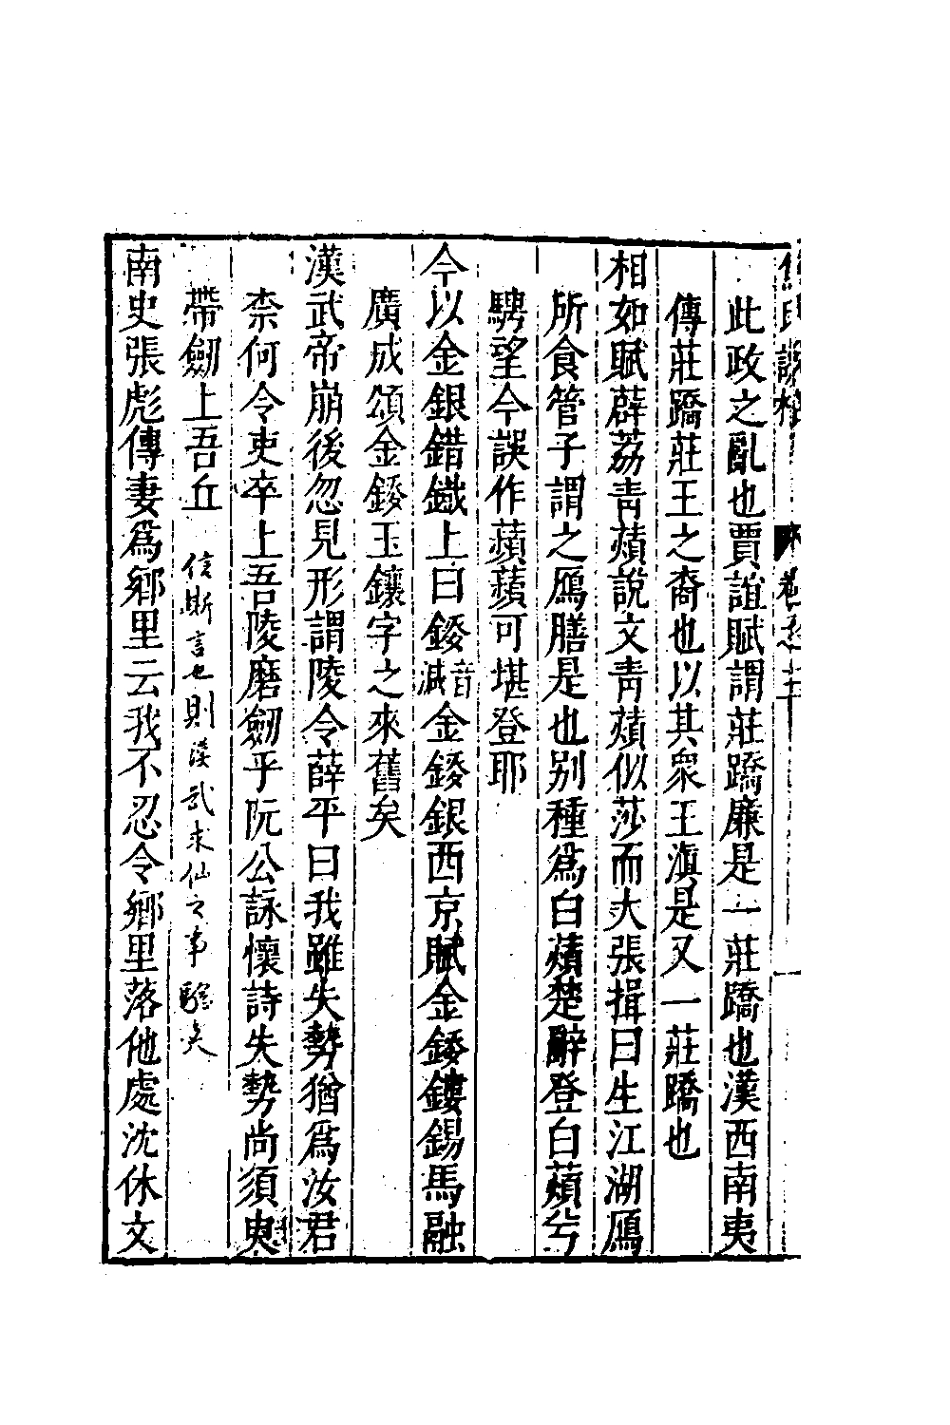 此政之亂也賈誼賦謂莊蹻廉是一莊蹻也漢西南夷
傳莊蹻莊王之裔也以其衆王滇是又一莊蹻也
相如賦薜荔青薠說文青薠似莎而大張揖曰生江湖鴈
所食管子謂之鴈膳是也别種爲白薠楚辭登白薠兮
騁望今誤作蘋蘋可堪登耶
今以金銀錯鐵上曰鋄音減金鋄銀西京賦金鋄鏤錫馬融
廣成頌金鋄玉鑲字之來舊矣
漢武帝崩後忽見形謂陵令薛平曰我雖失勢猶爲汝君
柰何令吏卒上吾陵磨劒乎阮公詠懷詩失勢尚須臾
帶劒上吾丘 信斯言也則漢武求仙之事驗矣
南史張彪傳妻爲鄉里云我不忍令鄉里落他處沈休文